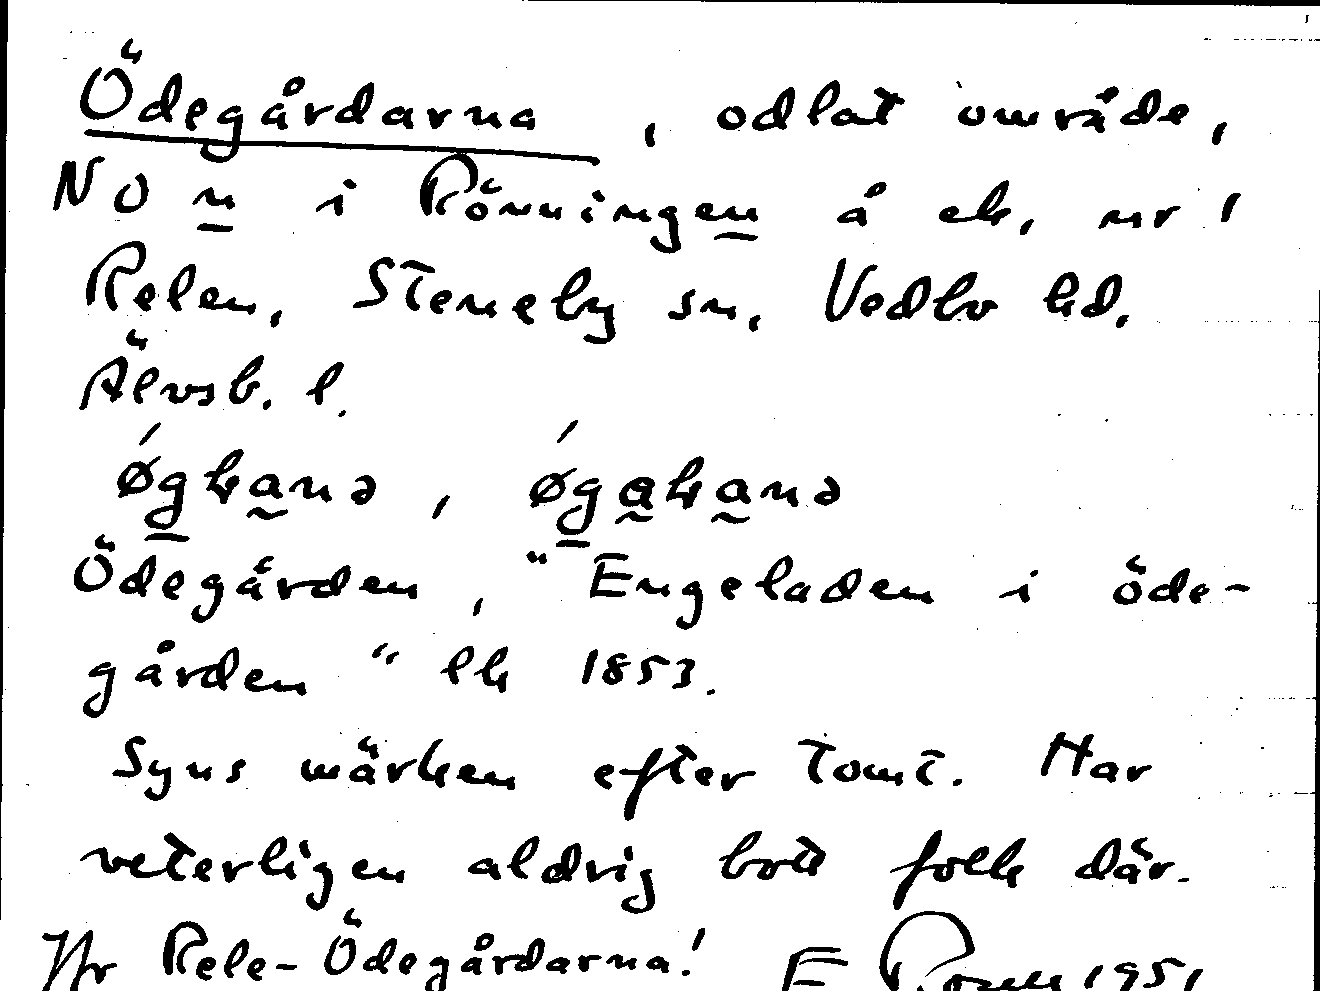 Ödegårdarna, odlat område,
NO n i Rönningen å ek. nr 1
Relen, Steneby sn, Vedbo hd.
Älvsb. l.
ǿgkanə, ǿgakanə
Ödegården, "Engeladen i öde-
gården" lh 1853.
Syns märken efter tomt. Har
veterligen aldrig bott folk där.
Jfr Rele-Ödegårdarna! E 1951